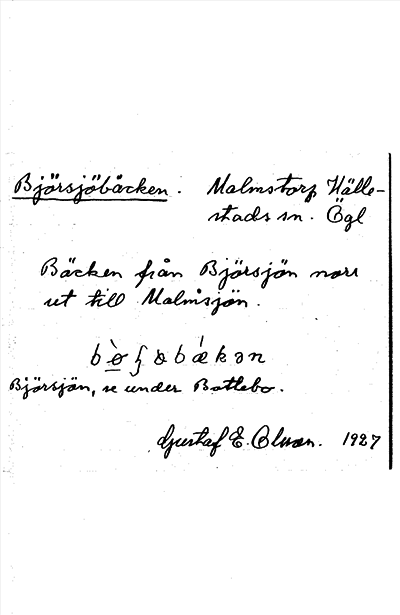 Björsjöbäcken. Malmstorp Hälle-
stads sn. Ögl
Bäcken från Björsjön norr
ut till Malmsjön.
Björsjön, se under Bottebo.
Gustaf E. Olsson. 1927